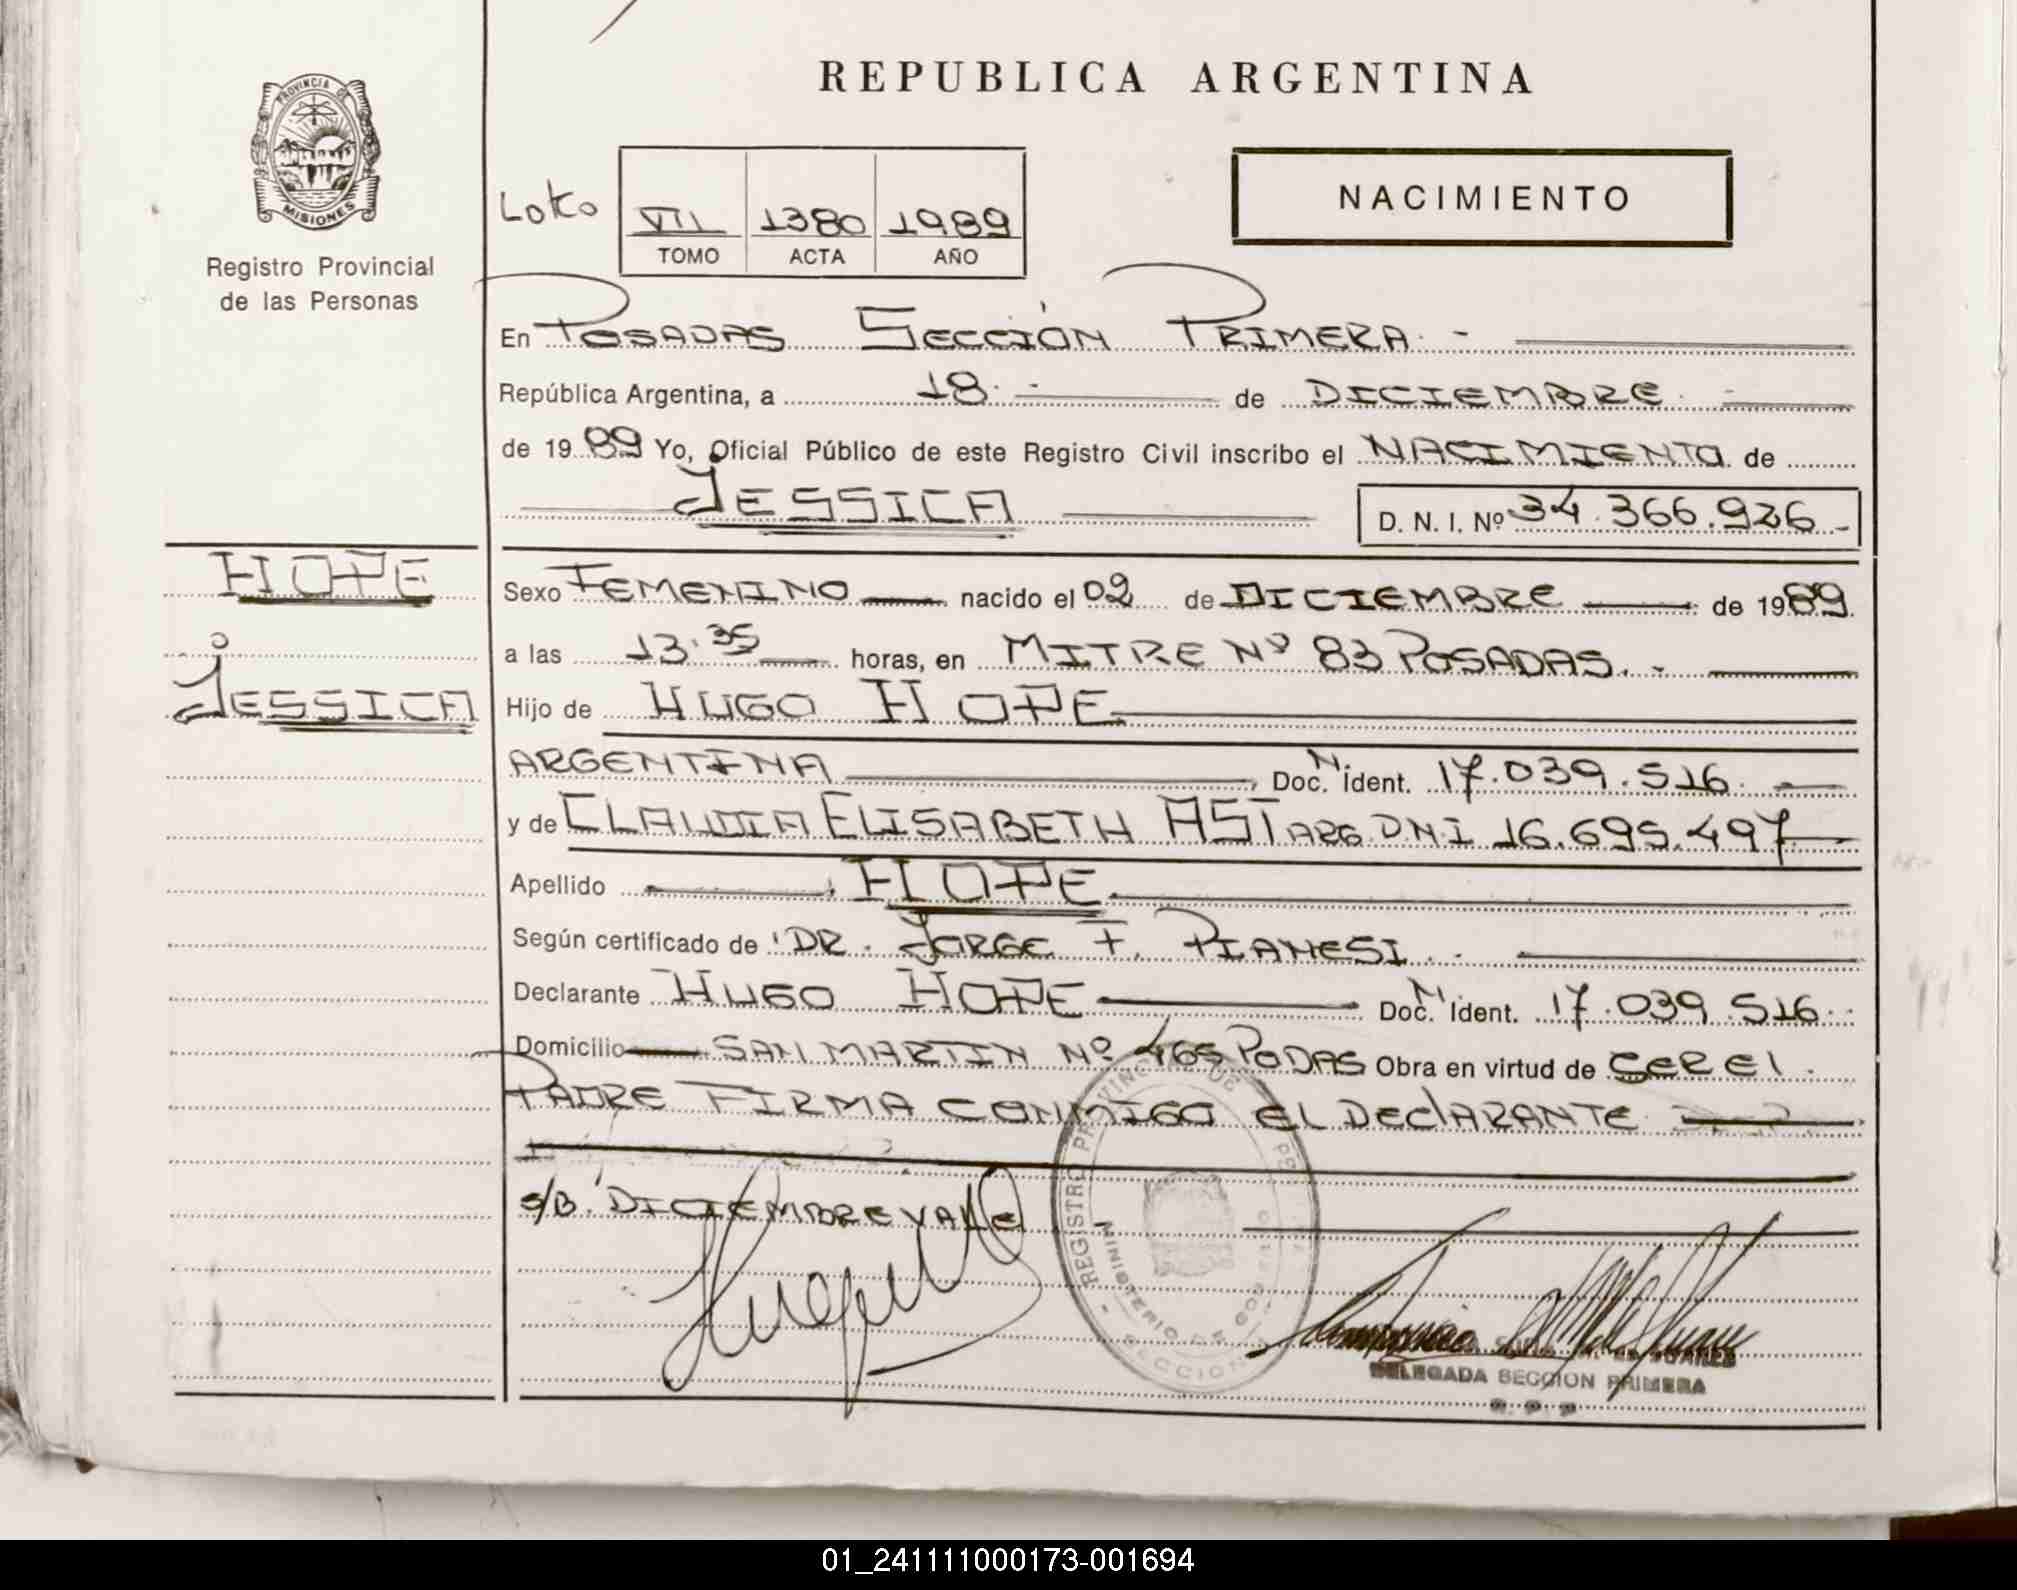 REPUBLICA ARGENTINA
PROVINCIA DE
MISIONES
Registro Provincial
de las Personas
Loko
VII 1380 1989
TOMO ACTA AÑO
NACIMIENTO
En POSADAS SECCIÓN PRIMERA. -
República Argentina, a 18.- de DICIEMBRE. -
de 1989 Yo, Oficial Público de este Registro Civil inscribo el NACIMIENTO de
JESSICA
D. N. I. Nº 34.366.926.-
HOPE
JESSICA
Sexo FEMENINO nacido el 02 de DICIEMBRE de 1989.
a las 13:35 horas, en MITRE Nº 83 POSADAS. -
Hijo de HUGO HOPE
ARGENTINA Doc. N. ident. 17.039.516.
y de CLAUDIA ELISABETH AST ARG. D.N.I 16.695.497
Apellido HOPE
Según certificado de DR. JORGE F. PIANESI. -
Declarante HUGO HOPE Doc. N. Ident. 17.039.516.
Domicilio SAN MARTIN Nº 465 PODAS Obra en virtud de SER El
PADRE FIRMA CONMIGO EL DEClARANTE
S/B. DICIEMBRE VALE
REGISTRO PROVINCIAL DE
MINISTERIO DE GOB
SECCION
DELEGADA SECCION PRIMERA
R. P. P
01_241111000173-001694